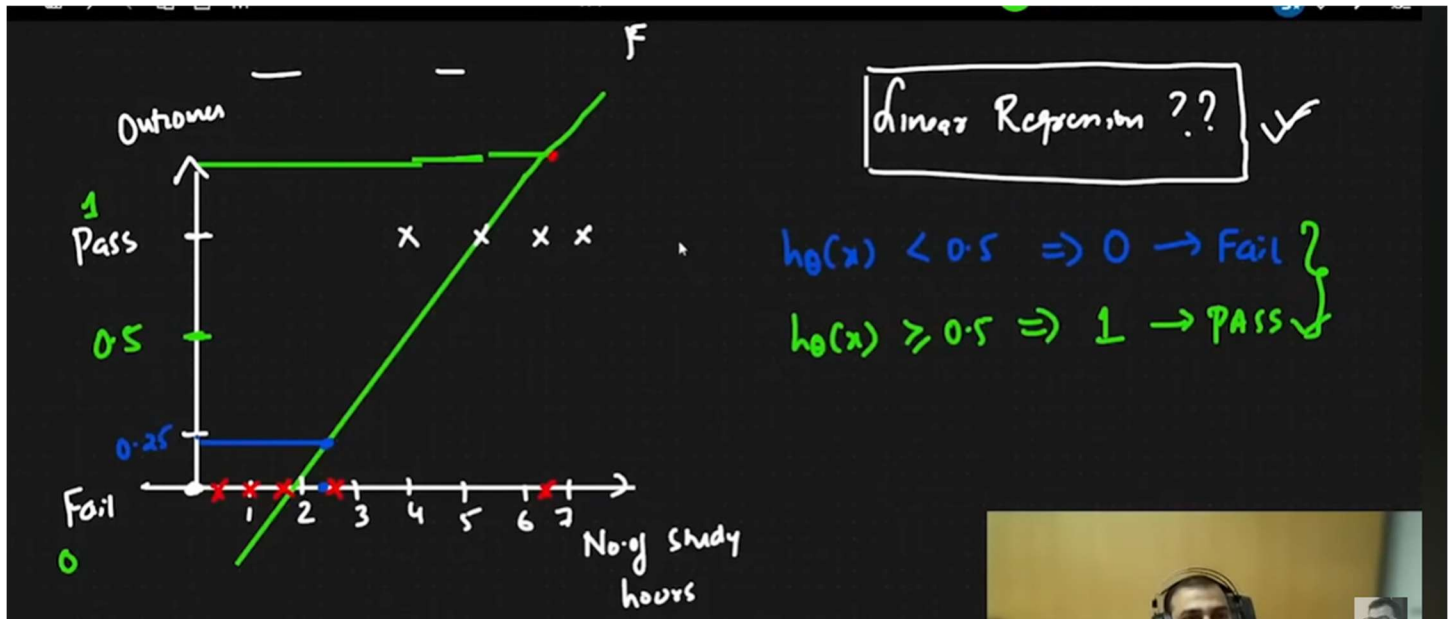 F
Outcomes
1
Pass
0.5
0.25
Fail
0
1 2 3 4 5 6 7
No. of study
hours
Linear Regression ??
hθ(x) < 0.5 => 0 → Fail
hθ(x) ≥ 0.5 => 1 → PASS